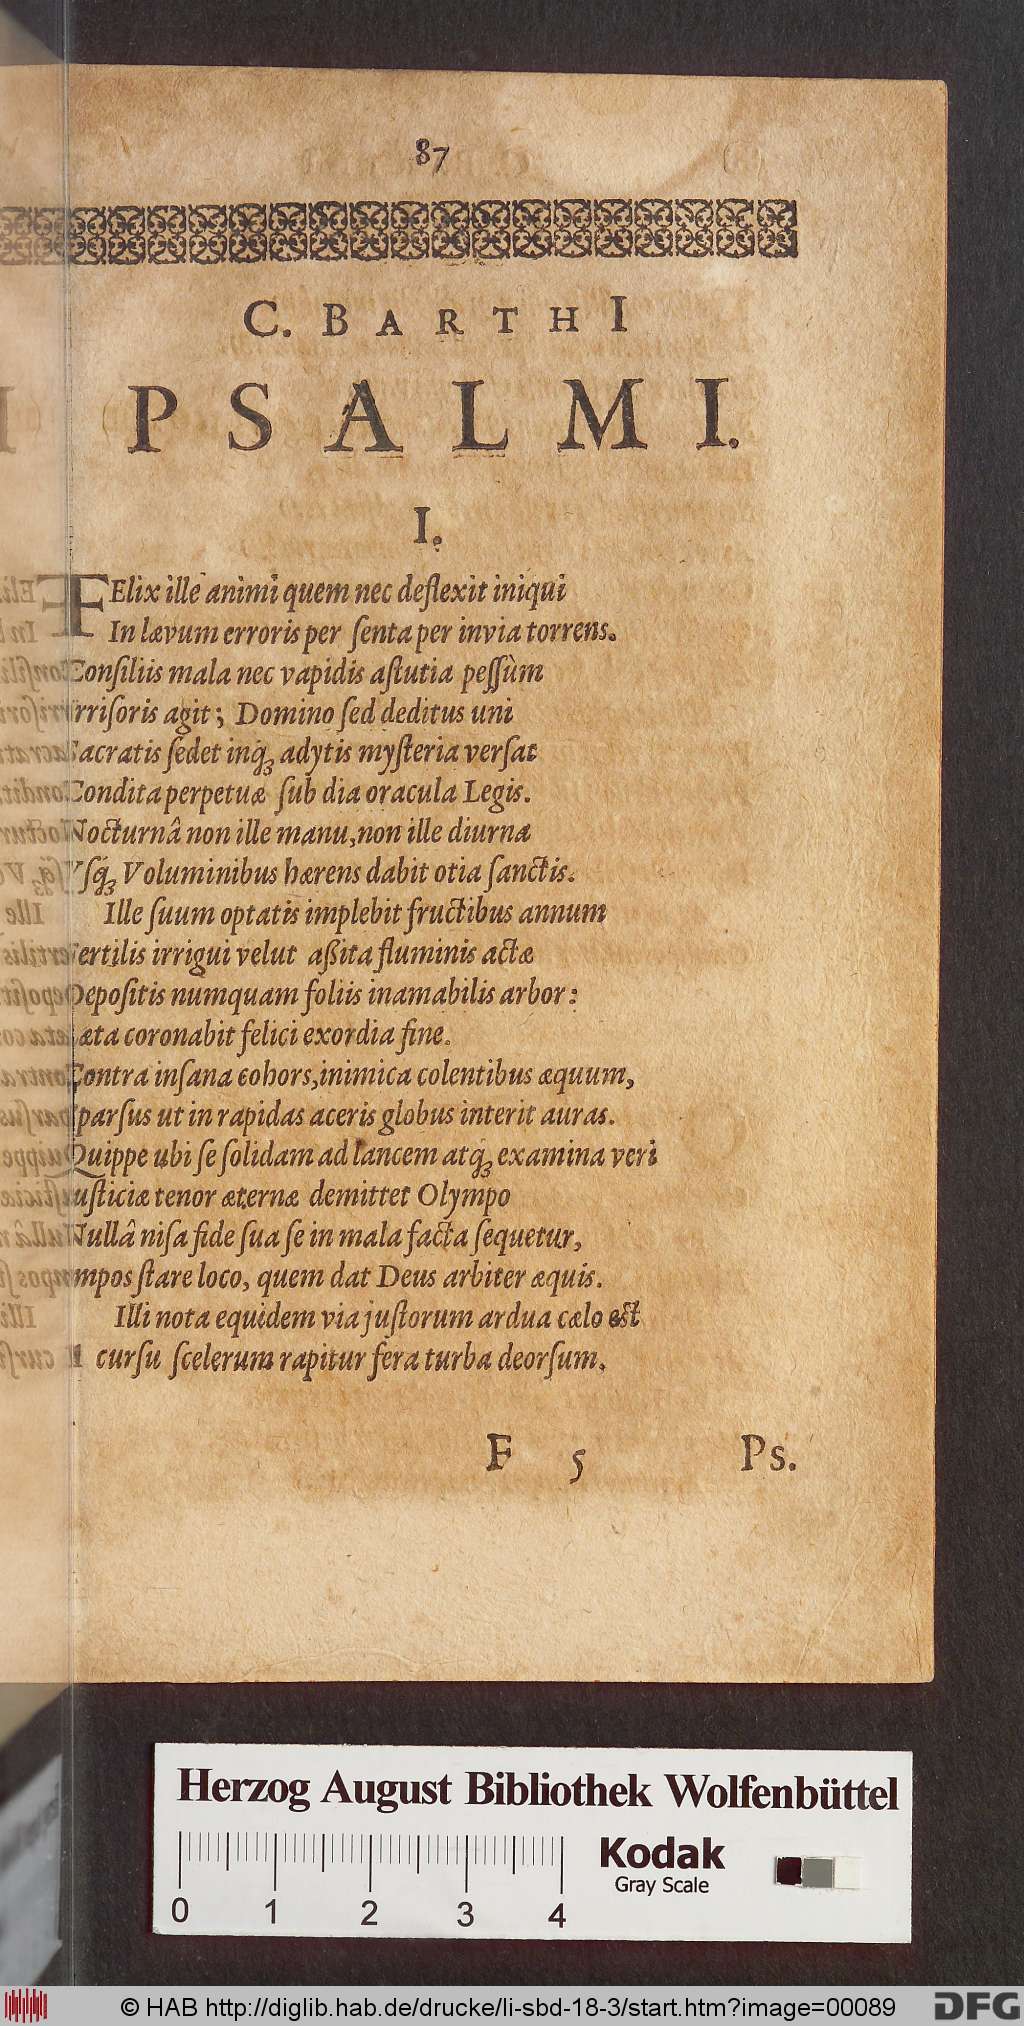 87
C. BARTHI
PSALMI.
I.
FElix ille animi quem nec deflexit iniqui
In lævum erroris per senta per invia torrens.
Consiliis mala nec vapidis astutia pessùm
Irrisoris agit; Domino sed deditus uni
Sacratis sedet inq́; adytis mysteria versat
Condita perpetuæ sub dia oracula Legis.
Nocturnâ non ille manu, non ille diurnæ
Vsq́; Voluminibus hærens dabit otia sanctis.
Ille suum optatis implebit fructibus annum
Fertilis irrigui velut aßita fluminis actæ
Depositis numquam foliis inamabilis arbor:
Læta coronabit felici exordia fine.
Contra insana cohors, inimica colentibus æquum,
Sparsus ut in rapidas aceris globus interit auras.
Quippe ubi se solidam ad lancem atq́; examina veri
Iusticiæ tenor æternæ demittet Olympo
Nullâ nisa fide sua se in mala facta sequetur,
Impos stare loco, quem dat Deus arbiter æquis.
Illi nota equidem via justorum ardua cælo est
cursu scelerum rapitur fera turba deorsum.
F 5 Ps.
Herzog August Bibliothek Wolfenbüttel
Kodak
Gray Scale
0 1 2 3 4
© HAB http://diglib.hab.de/drucke/li-sbd-18-3/start.htm?image=00089 DFG